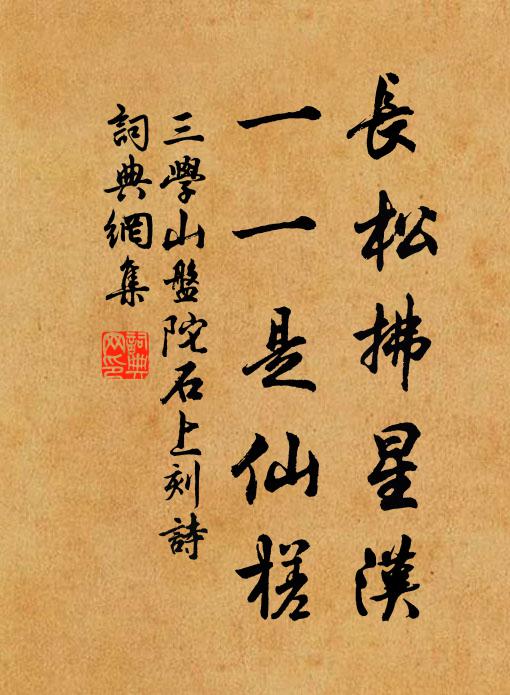 長松拂星漢
一一是仙槎
三學山盤陀石上刻詩
詞典網集
詞典网印